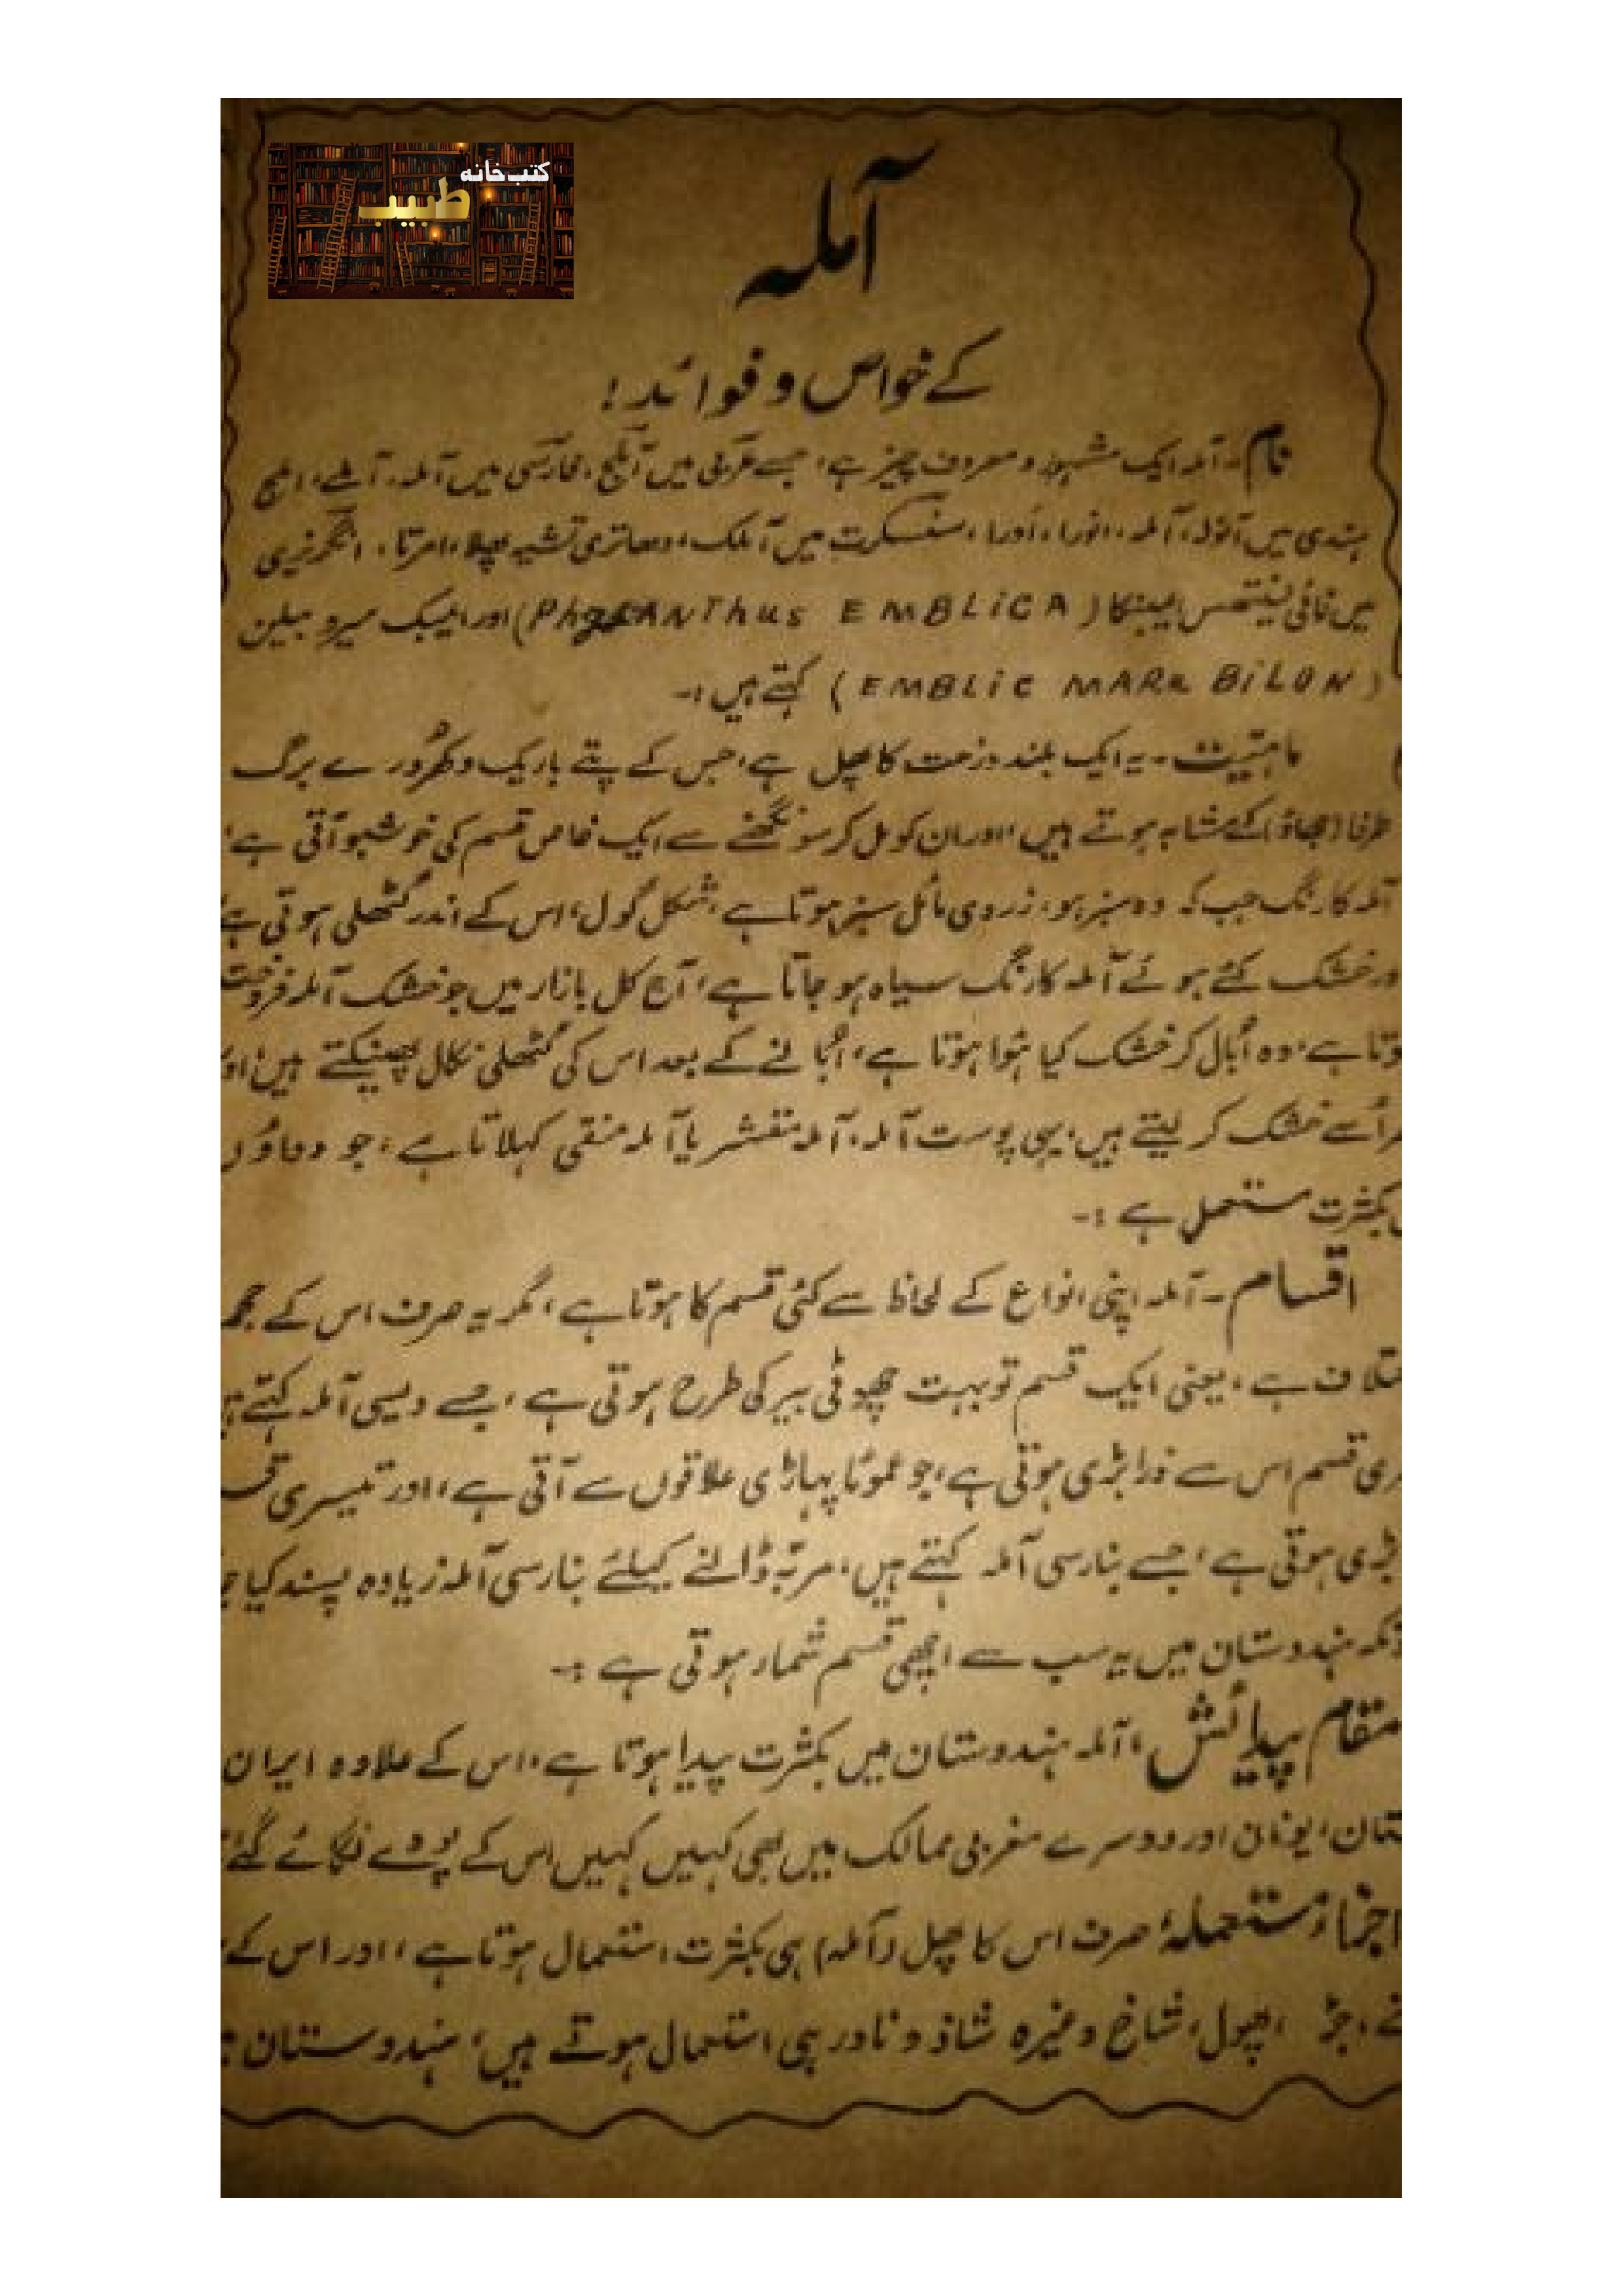 کتب خانہ
طبیب
آملہ
کے خواص و فوائد!
نام۔ آملہ ایک مشہور و معروف چیز ہے، جسے عربی میں آملج، فارسی میں آملہ، آملے، املج
ہندی میں آنولہ، آملہ، انورا، اَورا، سنسکرت میں آملک، دھاتری پھلا، امرتا، انگریزی
میں فائی لینتھس ایمبلکا (EMBLiCA) اور ایمبلک میرو بیلن
(EMBLiC MARa BiLON) کہتے ہیں :۔
ماہیت۔ یہ ایک بلند درخت کا پھل ہے، جس کے پتے باریک و کھُردرے برگ
طرفا (جھاؤ) کے مشابہ ہوتے ہیں، اور ان کو مل کر سونگھنے سے ایک خاص قسم کی خوشبو آتی ہے،
آملہ کا رنگ جب کہ وہ سبز ہو، زردی مائل سبز ہوتا ہے، شکل گول، اس کے اندر گٹھلی ہوتی ہے
ور خشک کئے ہوئے آملہ کا رنگ سیاہ ہو جاتا ہے، آج کل بازار میں جو خشک آملہ فروخت
وتا ہے، وہ اُبال کر خشک کیا ہُوا ہوتا ہے، اُبالنے کے بعد اس کی گٹھلی نکال پھینکتے ہیں، او
ر اُسے خشک کر لیتے ہیں، یہی پوست آملہ، آملہ مقشر یا آملہ منقی کہلاتا ہے، جو دواؤں
بکثرت مستعمل ہے :۔
اقسام۔ آملہ اپنی انواع کے لحاظ سے کئی قسم کا ہوتا ہے، مگر یہ صرف اس کے
ختلاف ہے، یعنی ایک قسم تو بہت چھوٹی بیر کی طرح ہوتی ہے، جسے دیسی آملہ کہتے
ری قسم اس سے ذرا بڑی ہوتی ہے، جو عموماً پہاڑی علاقوں سے آتی ہے، اور تیسری قس
بڑی ہوتی ہے، جسے بنارسی آملہ کہتے ہیں، مربّہ ڈالنے کیلئے بنارسی آملہ زیادہ پسند کیا
نکہ ہندوستان میں یہ سب سے اچھی قسم شمار ہوتی ہے :۔
مقام پیدائش، آملہ ہندوستان میں بکثرت پیدا ہوتا ہے، اس کے علاوہ ایران
ستان، یونان اور دوسرے مغربی ممالک میں بھی کہیں کہیں اس کے پودے لگائے گئے
اجزاء مستعملہ، صرف اس کا پھل (آملہ) ہی بکثرت استعمال ہوتا ہے، اور اس کے
جڑ، پھول، شاخ وغیرہ شاذ و نادر ہی استعمال ہوتے ہیں، ہندوستان